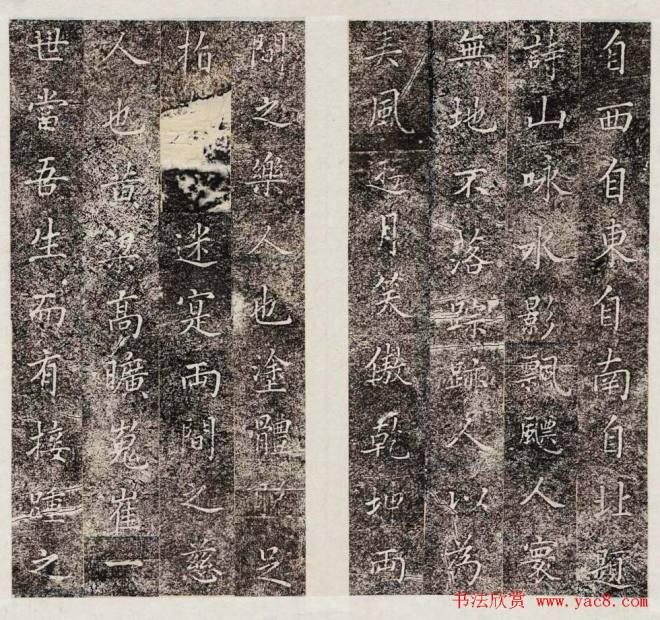 自西自東自南自北題
詩山咏水影飄飃人寰
無地不落踪跡人以為
美風月笑傲乾兩
間之樂人也塗體足
迷寔兩間之慈
人也昔高曠崔一
世當吾生而有接踵之
书法欣赏 www.yac8.com